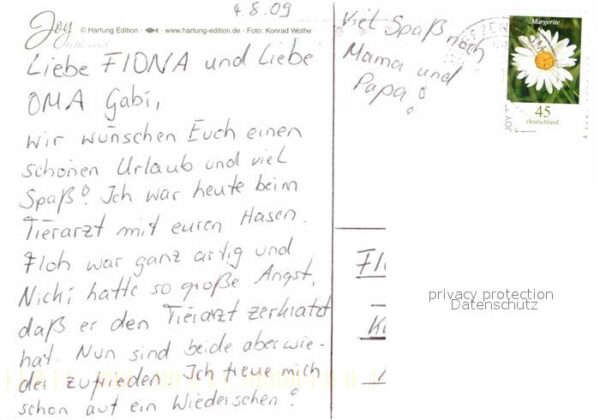 4.8.09
Joy
© Hartung Edition · www.hartung-edition.de · Foto: Konrad Wothe
Liebe FIONA und Liebe
OMA Gabi,
wir wünschen Euch einen
schönen Urlaub und viel
Spaß! Ich war heute beim
Tierarzt mit euren Hasen.
Floh war ganz artig und
Nicki hatte so große Angst,
daß er den Tierarzt zerkratzt
hat. Nun sind beide aber wie-
der zufrieden. Ich freue mich
schon auf ein Wiedersehen!
Viel Spaß noch
Mama und
Papa!
Margerite
45
Deutschland
privacy protection
Datenschutz